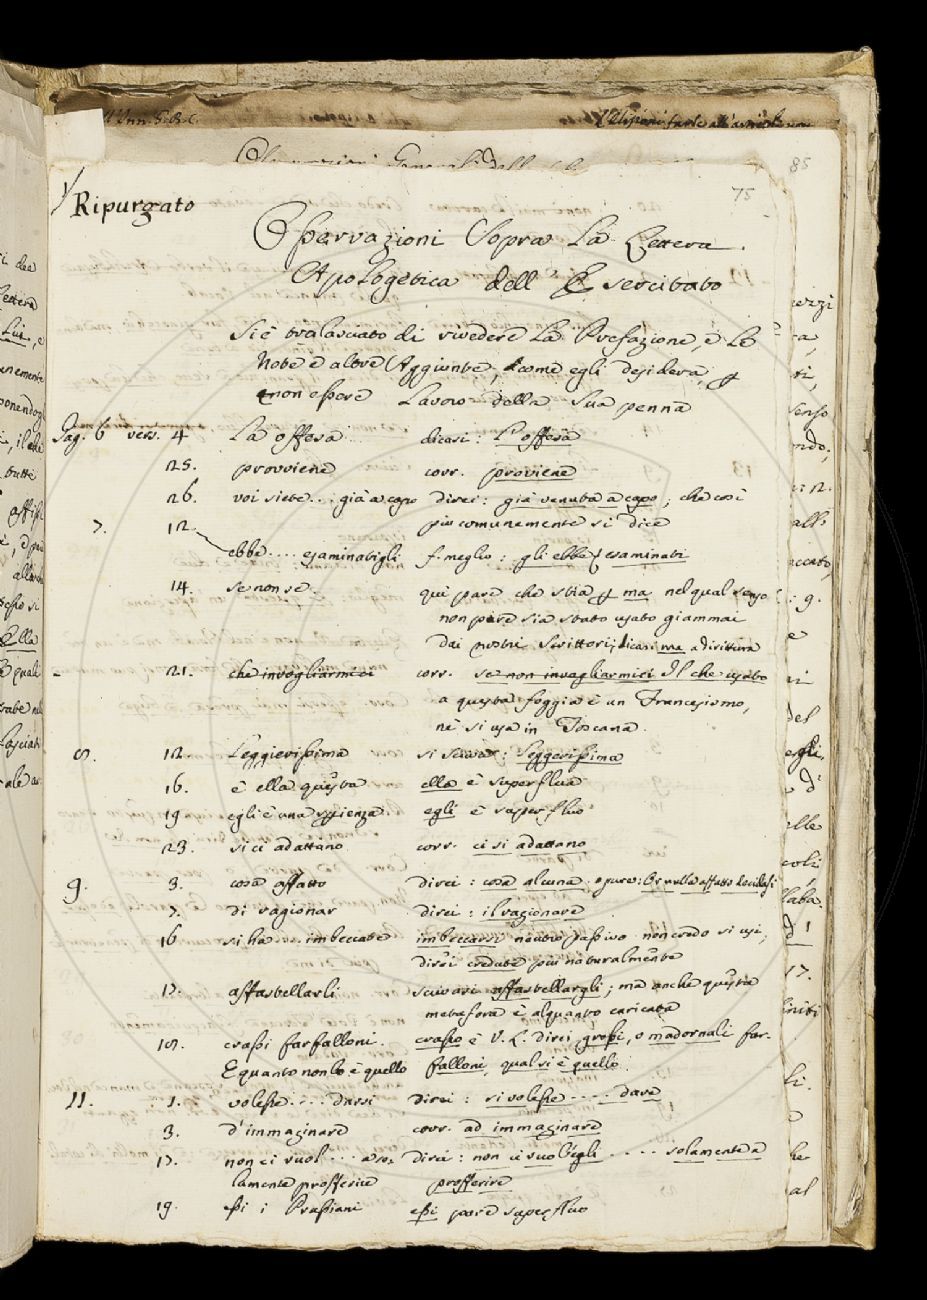 Ripurgato
75
85
Osservazioni Sopra La Lettera
Apologetica dell' Esercitato
Si è tralasciato di rivedere La Prefazione, e Le
Note e altre Aggiunte, come egli desidera, p
non essere Lavoro della Sua penna
Pag. 6 vers. 4 La offesa dicasi: L'offesa
25. provviene corr. proviene
26. voi siete... già a capo direi: già venuta a capo; che così
più comunemente si dice
7. 12. ebbe.... esaminatigli f. meglio: gli ebbe esaminati
14. se non se. qui pare che stia p ma nel qual senso
non pare sia stato usato giammai
dai nostri Scrittori; dicasi ma adirittura
21. che invogliarmici corr. se non invagliarmici Il che usato
a questa foggia è un Francesismo,
nè si usa in Toscana.
8. 12. Leggierissima si scriva: Leggerissima
16. è ella questa ella è superflua
19 egli è una spienza. egli è superfluo
23. si ci adattano corr. ci si adattano
9. 3. cosa affatto direi: cosa alcuna; o pure: nulla affatto
7. di ragionar direi: il ragionare
16 si ha... imbeccate imbeccarsi neutro passivo non credo si usi;
direi credute più naturalmente
17. affastellarli scrivasi affastellargli; ma anche questa
metafora è alquanto caricata
18. crassi farfalloni. crasso è V. L. direi, grossi, o madornali far-
E quanto non lo è quello falloni, qual si è quello
11. 1. volesse.... darsi direi: si volesse..... dare
3. d'immaginare corr. ad immaginare
17. non ci vuol... a so, direi: non ci vuol egli.... solamente a
lamente profferire profferire
19. essi i Prussiani essi pare superfluo